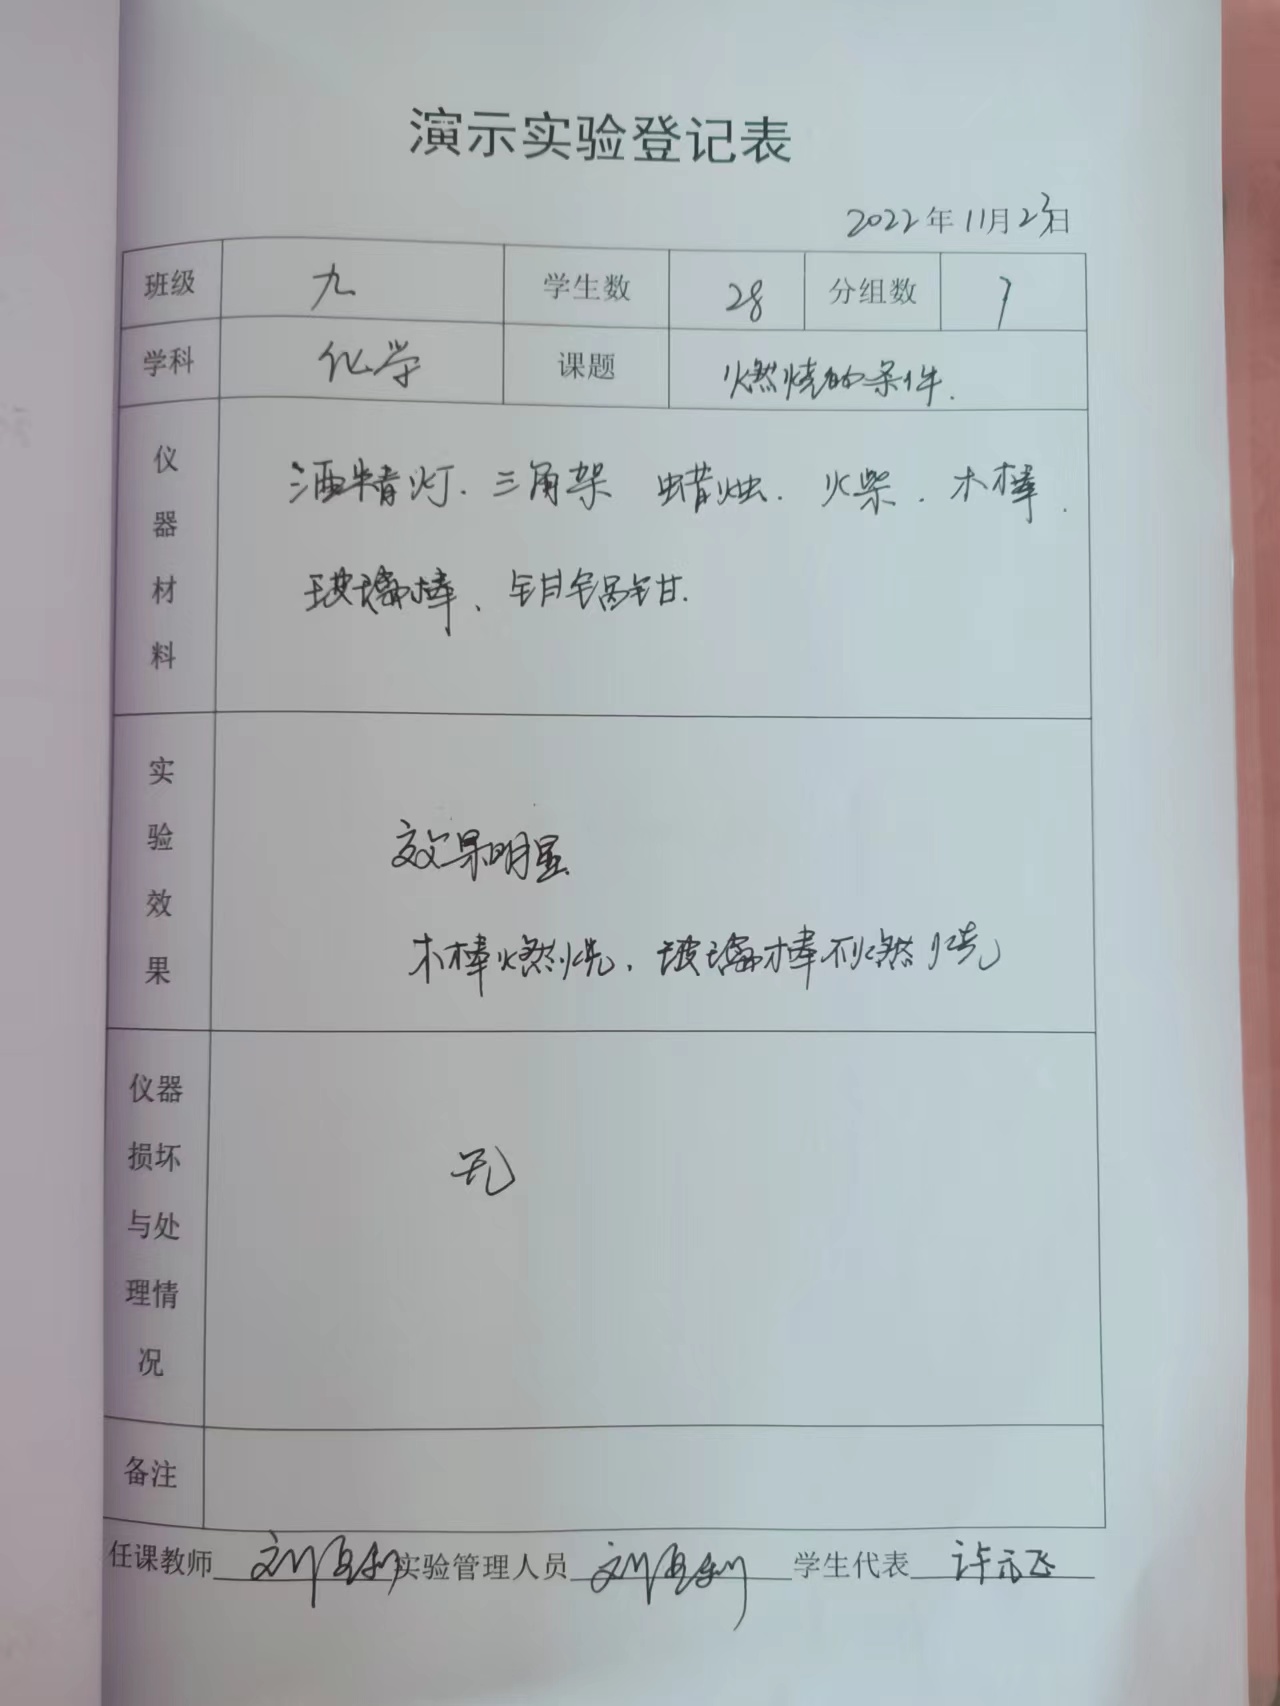 演示实验登记表
2022年11月23日
班级 九 学生数 28 分组数 7
学科 化学 课题 燃烧的条件.
仪器材料 酒精灯. 三角架 蜡烛. 火柴. 木棒.
玻璃棒、钳锅钳.
实验效果 效果明显
木棒燃烧, 玻璃棒不燃烧
仪器损坏与处理情况 无
备注
任课教师 实验管理人员 学生代表